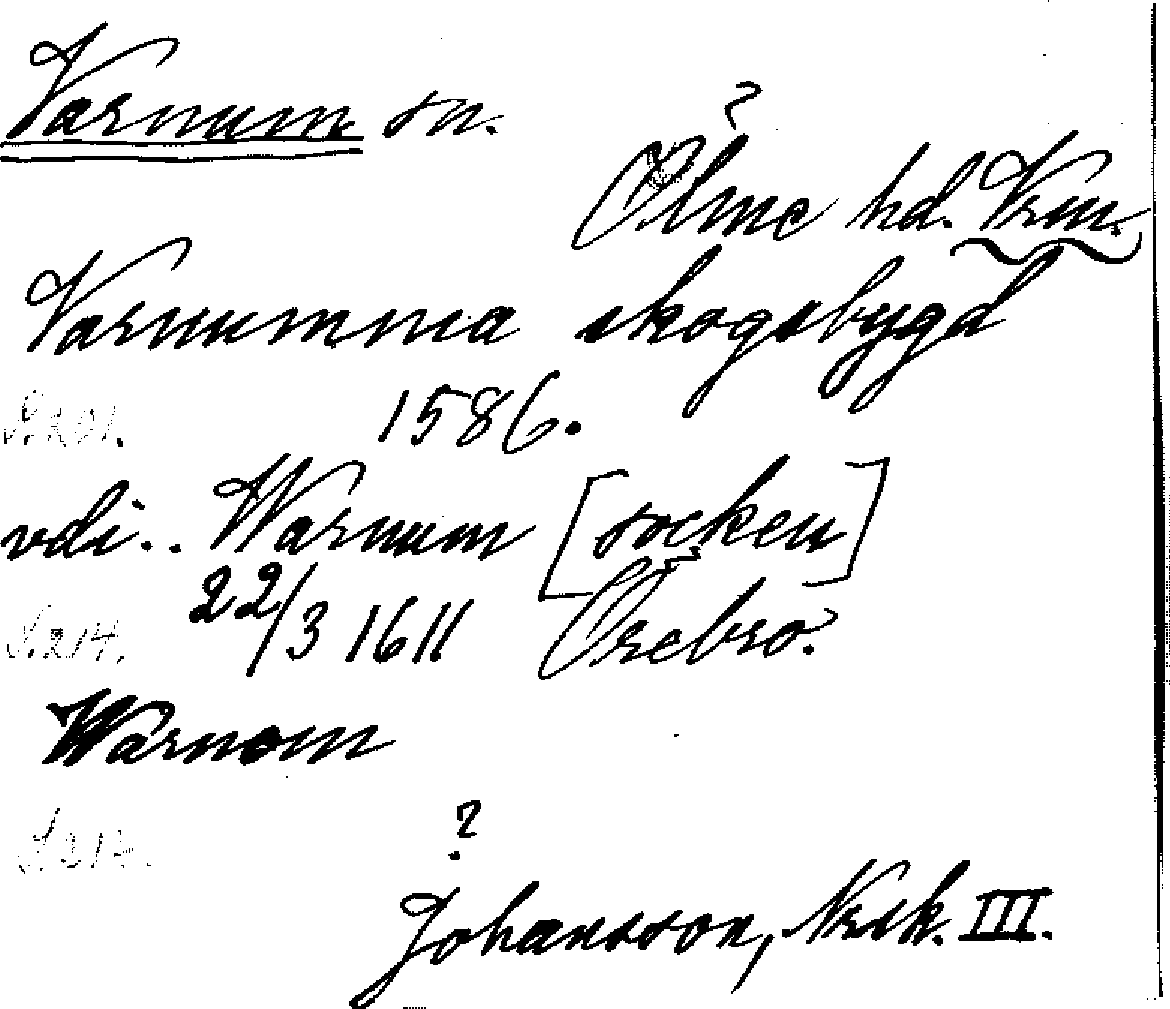 Varnum sn.
?
Ölme hd. Vrm.
Varnumma skogsbygd
S. 201. 1586.
vdi.. Warnum [socken]
S. 214. 22/3 1611 Örebro.
Warnom
S. 217.
?
Johansson, Nrik. III.